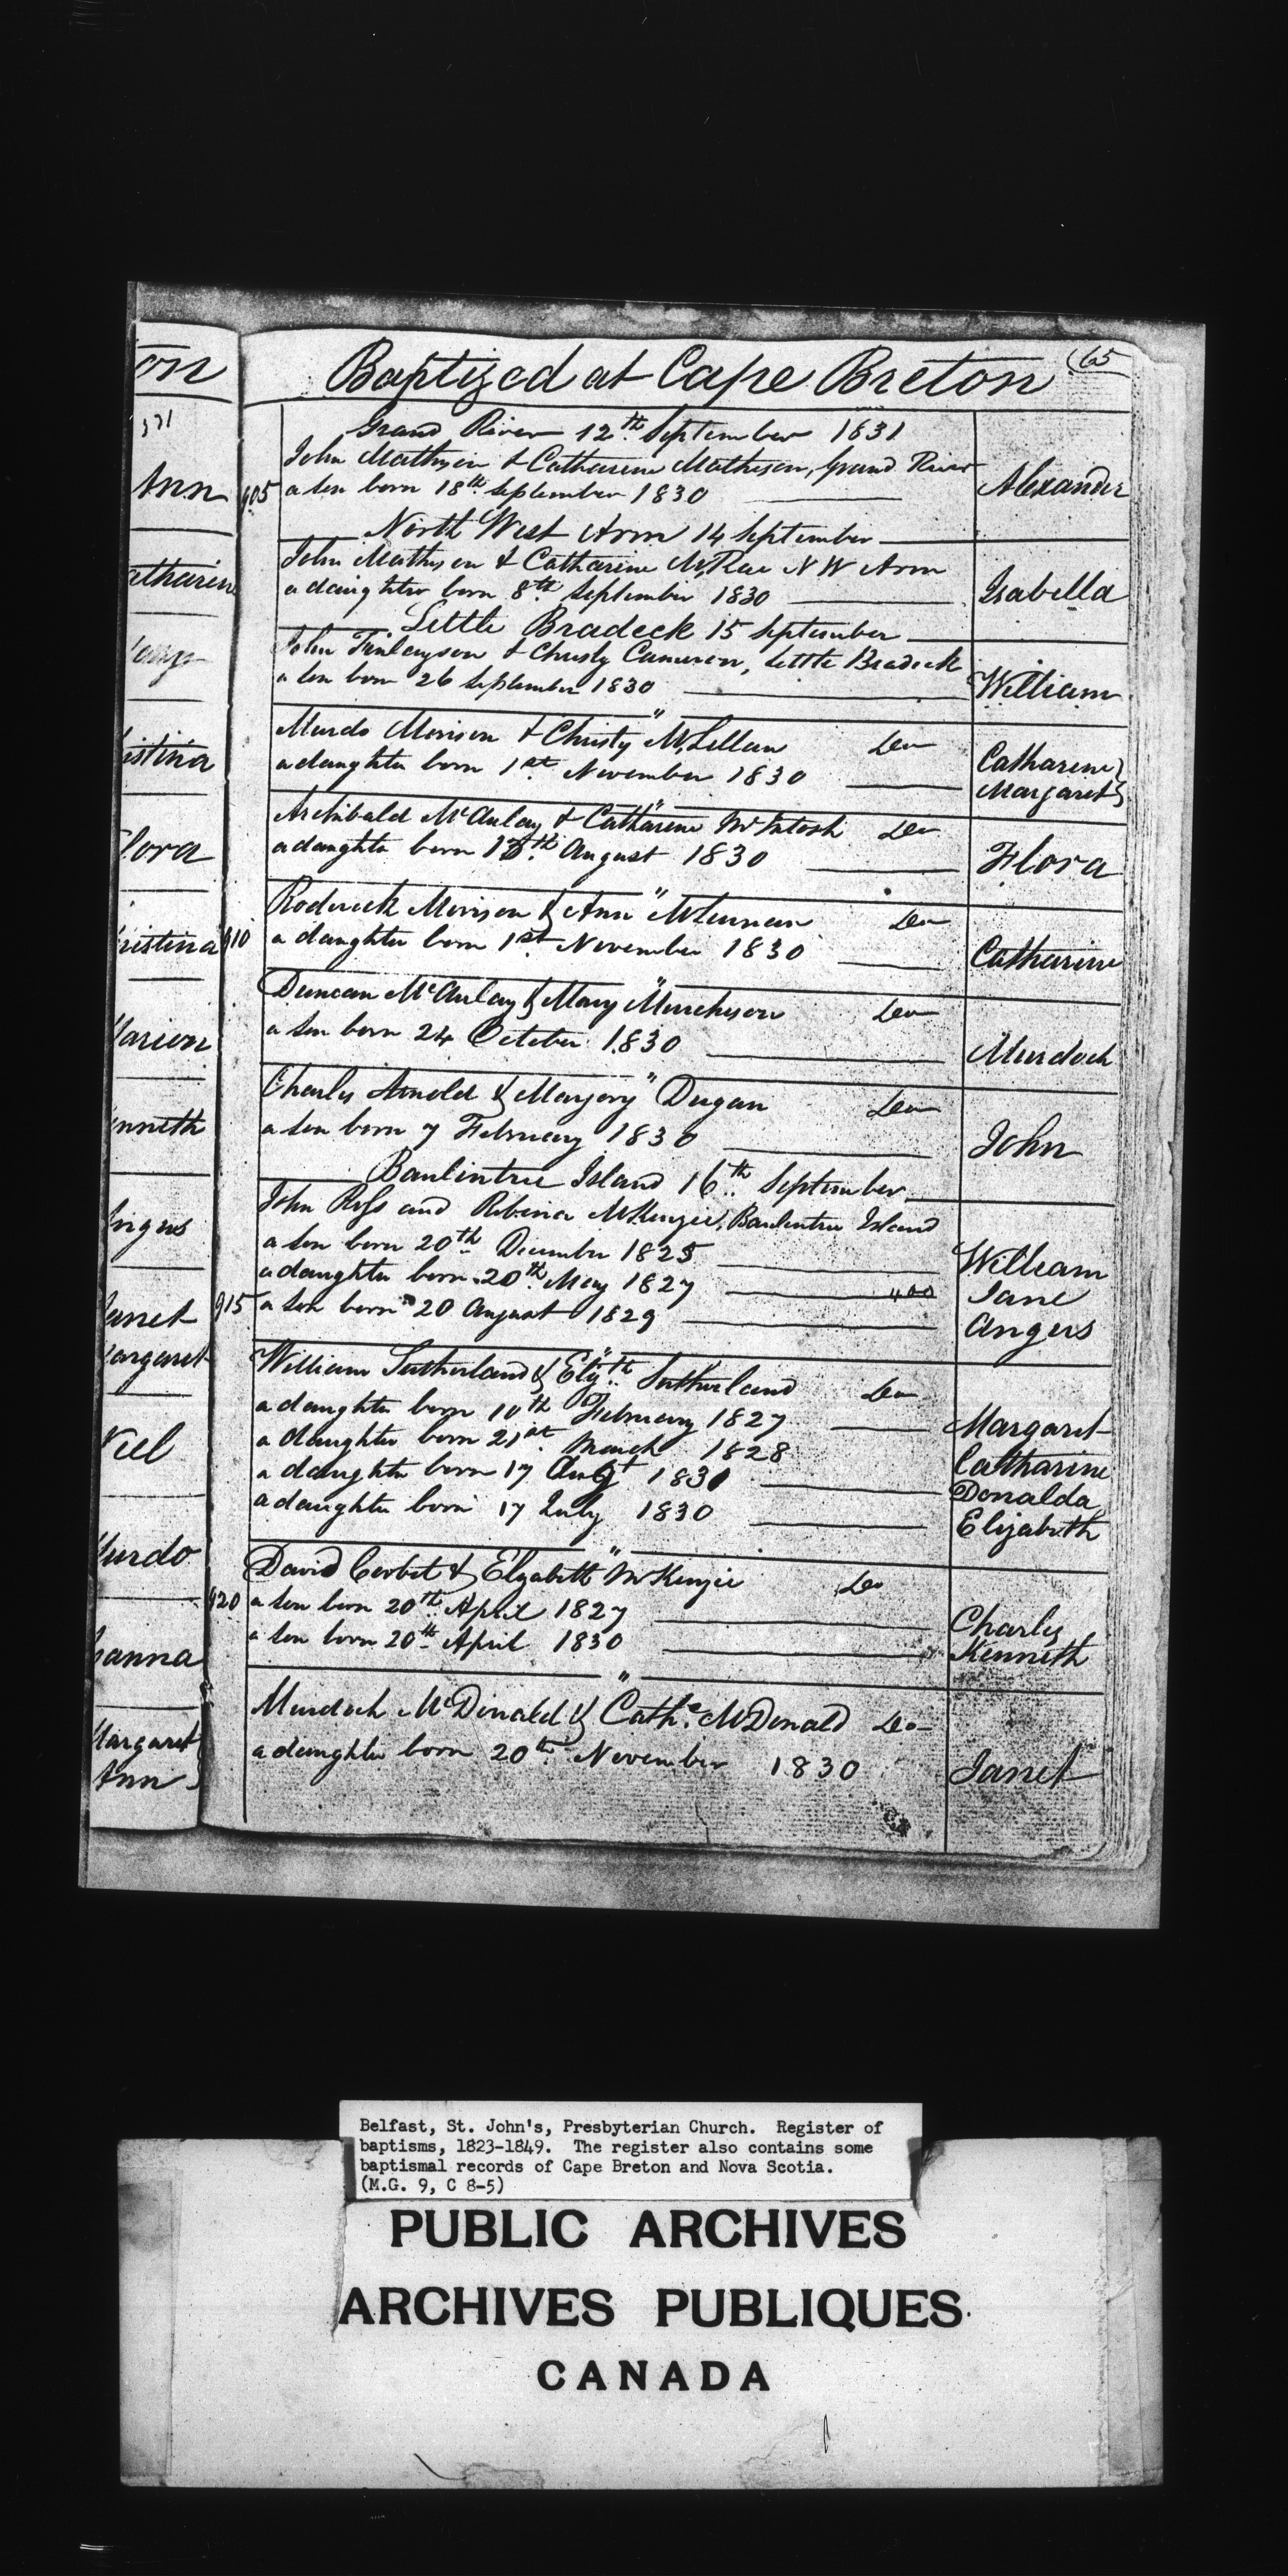 on
Baptized at Cape Breton
65
Grand River 12th September 1831
John Mathison & Catharine Matheson, Grand River
905 a son born 18th September 1830
Alexander
North West Arm 14 September
John Mathison & Catharine McRae N W Arm
a daughter born 8th September 1830
Isabella
Little Bradeck 15 September
John Finlayson & Christy Cameron, Little Bradeck
a son born 26 September 1830
William
Murdo Morison & Christy McLellan Do
a daughter born 1st November 1830
Catharine
Margaret
Archibald McAulay & Catharine McIntosh Do
a daughter born August 1830
Flora
Roderick Morison & Ann McLennan Do
910 a daughter born 1st November 1830
Catharine
Duncan McAulay & Mary Murchison Do
a son born 24 October 1830
Murdoch
Charles Arnold & Marjory Dugan Do
a son born 7 February 1830
John
Baulintree Island 16th September
John Ross and Robina McKenzie, Baulentree Island
a son born 20th December 1825
William
a daughter born 20th May 1827
Jane
915 a son born 20 August 1829
Angus
William Sutherland & Elizth Sutherland Do
a daughter born 10th February 1827
Margaret
a daughter born 21st March 1828
Catharine
a daughter born 17 Augt 1831
Donalda
a daughter born 17 July 1830
Elizabeth
David Corbet & Elizabeth McKenzie Do
920 a son born 20th April 1827
Charles
a son born 20th April 1830
Kenneth
Murdoch McDonald & Cathe McDonald Do
a daughter born 20th November 1830
Janet
Ann
atharine
istina
lora
ristina
arion
nneth
ngus
anet
argaret
Neil
urdo
anna
argaret
Ann
Belfast, St. John's, Presbyterian Church. Register of
baptisms, 1823-1849. The register also contains some
baptismal records of Cape Breton and Nova Scotia.
(M.G. 9, C 8-5)
PUBLIC ARCHIVES
ARCHIVES PUBLIQUES
CANADA